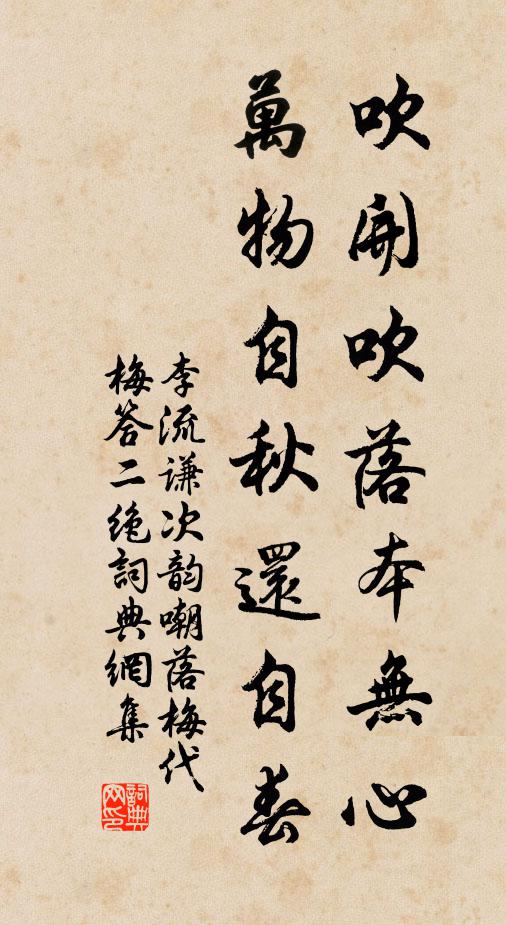 吹開吹落本無心
萬物自秋還自春
李流謙次韵嘲落梅代
梅答二絶詞典網集
詞典网印